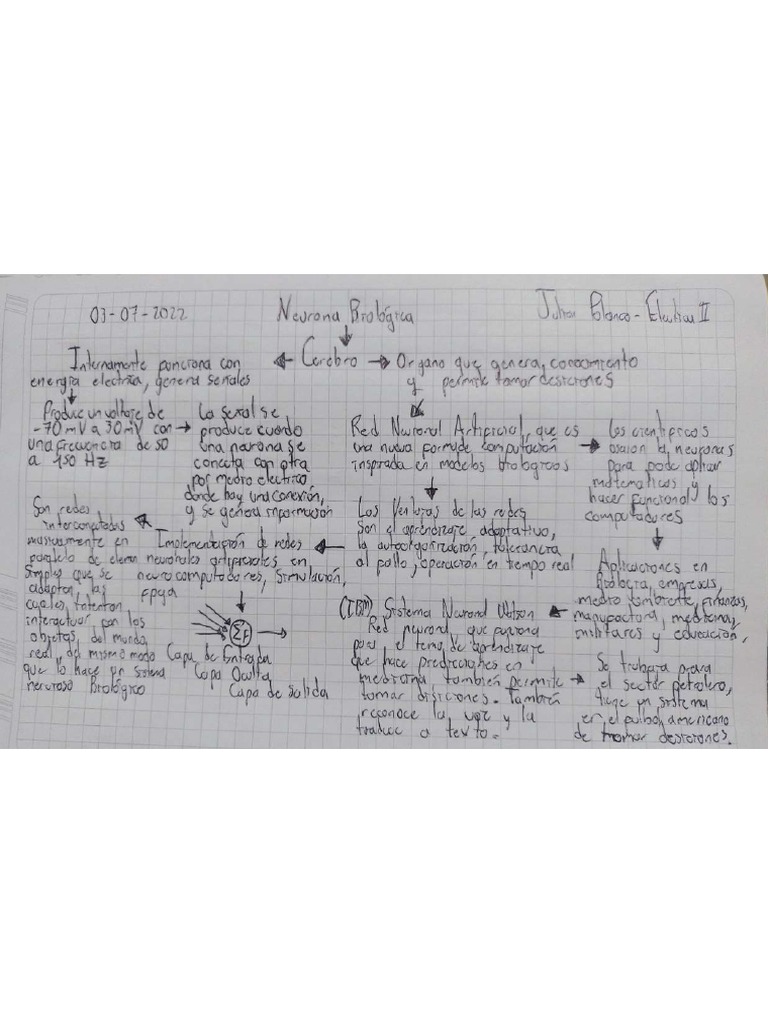 03-07-2022
Neurona Biológica
Julian Blanco - Electiva II
Cerebro
Internamente funciona con
energia electrica, genera señales
Organo que genera, conocimiento
y permite tomar desiciones
Produce un voltaje de
-70 mV a 30 mV con
una frecuencia de 50
a 150 Hz
La señal se
produce cuando
una neurona se
conecta con otra
por medio electrico
donde hay una conexión,
y se genera información
Red Neuronal Artificial, que es
una nueva forma de computación
inspirada en modelos biologicos
Los cientificos
la neuronas
para pode aplicar
matematicas y
hacer funcional los
computadores
Los Ventajas de las redes
Son el aprendizaje adaptativo,
la autoorganización, tolerancia
al fallo, operación en tiempo real
Aplicaciones en
Biologia, empresas,
medio ambiente, finanzas,
manufactura, medicina,
militares y educación,
(IBM) Sistema Neuronal Watson
Red neuronal, que funciona
para el tema de aprendizaje
que hace predicciones en
medicina, también permite
tomar disiciones. También
reconoce la voz y la
traduce a texto.
Se trabaja para
el sector petrolero,
tiene un sistema
en el americano
de tomar desiciones.
Implementación de redes
neuronales artificiales en
neurocomputadores, Simulación,
fpga
Son redes
interconectadas
masivamente en
paralelo de elemen
Simples que se
adaptan, las
cuales intentan
interactuar con los
objetos, del mundo
real, del mismo modo
que lo hace un sistema
nervioso Biológico
ΣF
Capa de Entrada
Capa Oculta
Capa de salida